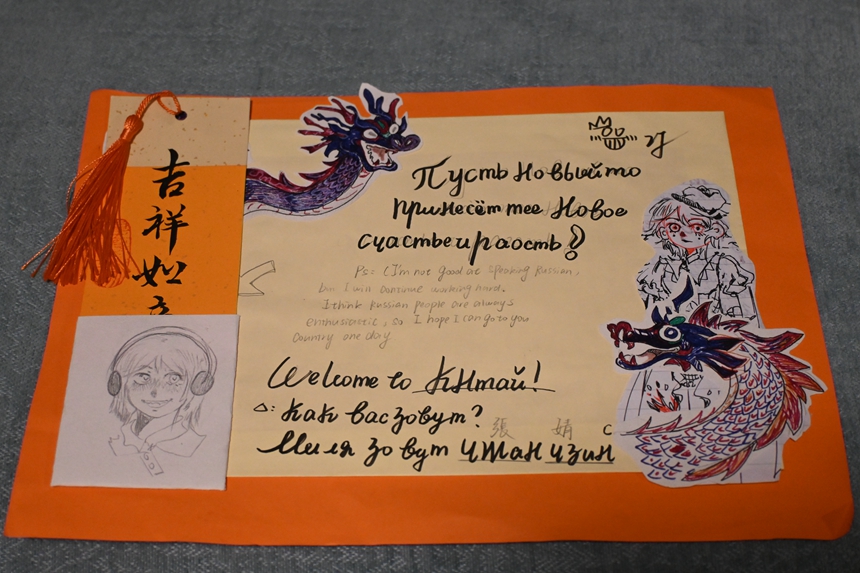 吉
祥
如
Пусть Новыйто
принесёт тее Новое
счастье и раость!
Ps: (I'm not good at speaking Russian,
but I will continue working hard.
I think Russian people are always
enthusiastic, so I hope I can go to you
Country one day
Welcome to Кнтай!
Δ: Как вас зовут?
張 婧 с
Миля зовут Чжан Цзин